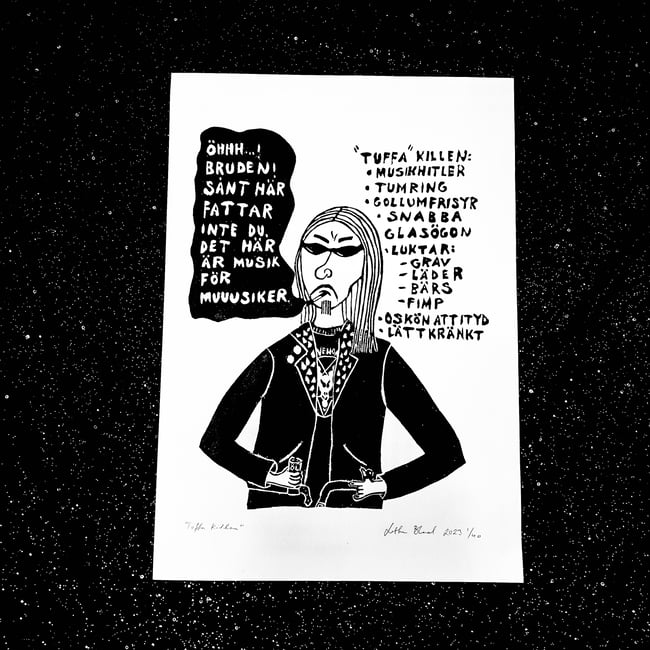 ÖHHH...!
BRUDEN!
SÅNT HÄR
FATTAR
INTE DU.
DET HÄR
ÄR MUSIK
FÖR
MUUUSIKER.
"TUFFA" KILLEN:
• MUSIKHITLER
• TUMRING
• GOLLUMFRISYR
• SNABBA
GLASÖGON
• LUKTAR:
- GRAV
- LÄDER
- BÄRS
- FIMP
• OSKÖN ATTITYD
• LÄTTKRÄNKT
"Tuffa Killen"
2023 1/40